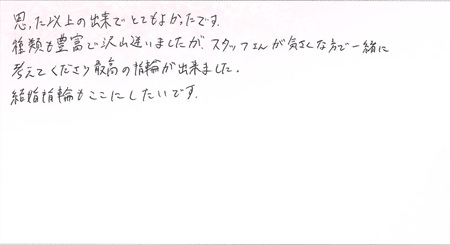 思った以上の出来でとてもよかったです。
種類も豊富で沢山迷いましたが、スタッフさんが気さくな方で一緒に
考えてくださり最高の指輪が出来ました。
結婚指輪もここにしたいです。